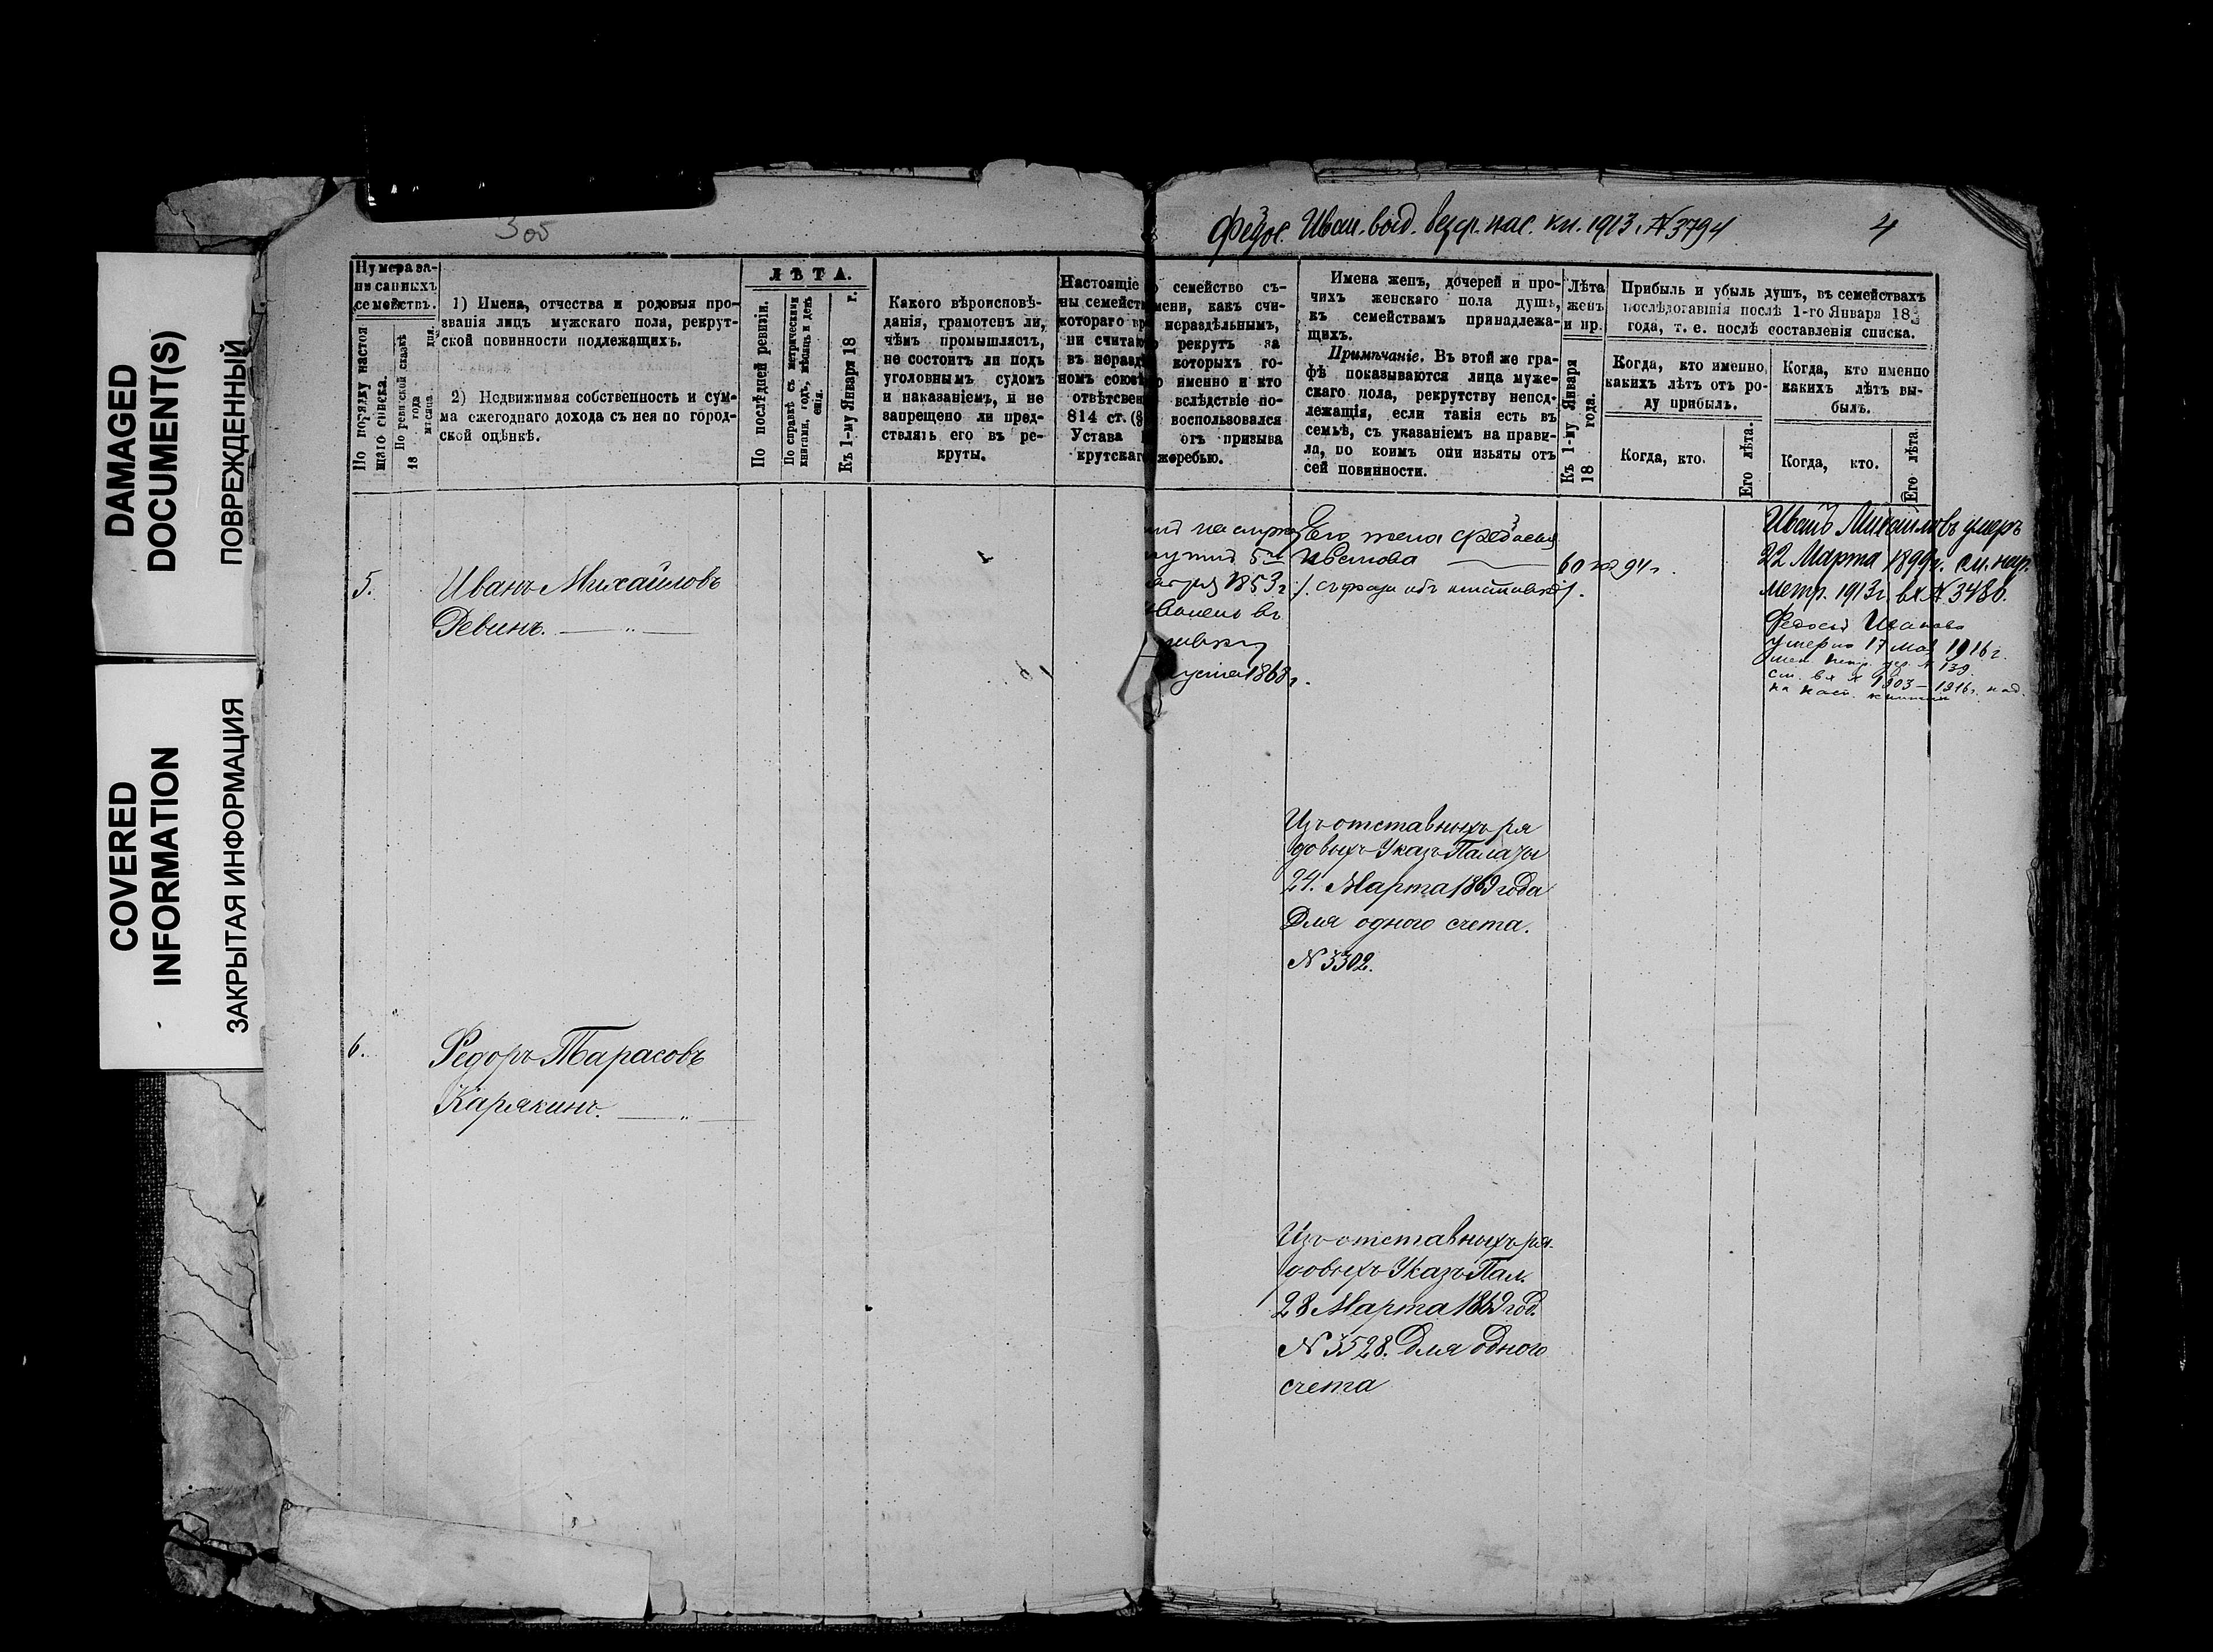 DAMAGED
DOCUMENT(S)
ПОВРЕЖДЕННЫЙ
COVERED
INFORMATION
ЗАКРЫТАЯ ИНФОРМАЦИЯ
305
Иван. выд. пас. кн. 1913 № 3794
4
Нумера за-
писанныхъ
семействъ.
По порядку настоя
щаго списка.
По ревизской сказкѣ
18 года
мѣсяца. дня.
1) Имена, отчества и родовыя про-
званія лицъ мужскаго пола, рекрут-
ской повинности подлежащихъ.
2) Недвижимая собственность и сум-
ма ежегоднаго дохода съ нея по город-
ской оцѣнкѣ.
ЛѢТА.
По послѣдней ревизіи.
По справкѣ съ метрическими
книгами, годъ, мѣсяцъ и день
Къ 1-му Января 18 г.
Какого вѣроисповѣ-
данія, грамотенъ ли,
чѣмъ промышляетъ,
не состоитъ ли подъ
уголовнымъ судомъ
и наказаніемъ, и не
запрещено ли пред-
ствлять его въ ре-
круты.
Настоящіе
ны семейст
котораго вр
ни считаю
въ неразд
номъ союз
отвѣтсвен
814 ст. (§
Устава
крутскаг
семейство съ-
мени, какъ счи-
нераздѣльнымъ,
рекрутъ за
которыхъ го-
именно и кто
вслѣдствіе по-
воспользовался
отъ призыва
жеребью.
Имена женъ, дочерей и про-
чихъ женскаго пола душъ,
къ семействамъ принадлежа-
щихъ.
Примѣчаніе. Въ этой же гра-
фѣ показываются лица муже-
скаго пола, рекрутству непод-
лежащія, если такія есть въ
семьѣ, съ указаніемъ на прави-
ла, по коимъ они изъяты отъ
сей повинности.
Лѣта
женъ
и пр.
Къ 1-му Января
18 года.
Прибыль и убыль душъ, въ семействахъ
послѣдовавшія послѣ 1-го Января 18
года, т. е. послѣ составленія списка.
Когда, кто именно,
какихъ лѣтъ отъ ро-
ду прибылъ.
Когда, кто.
Его лѣта.
Когда, кто именно
какихъ лѣтъ вы-
былъ.
Когда, кто.
Его лѣта.
5.
Иванъ Михайловъ
Ревинъ.
5го
1853 г.
1868 г.
Его жена Федосья
Иванова
60 94 г.
Иванъ Михайловъ умеръ
22 Марта 1899 г. см.
метр. 1913 г. вх № 3486.
Федосья Иванова
умерла 17 мая 1916 г.
№ 139
см. вх № 1903—1916 г.
Изъ отставныхъ ря
довыхъ Указъ Палаты
24. Марта 1869 года
Для одного счета.
N 3302.
6.
Федоръ Тарасовъ
Карякинъ.
Изъ отставныхъ ря-
довыхъ Указъ Пал.
28 Марта 1869 год.
N 3528. Для одного
счета